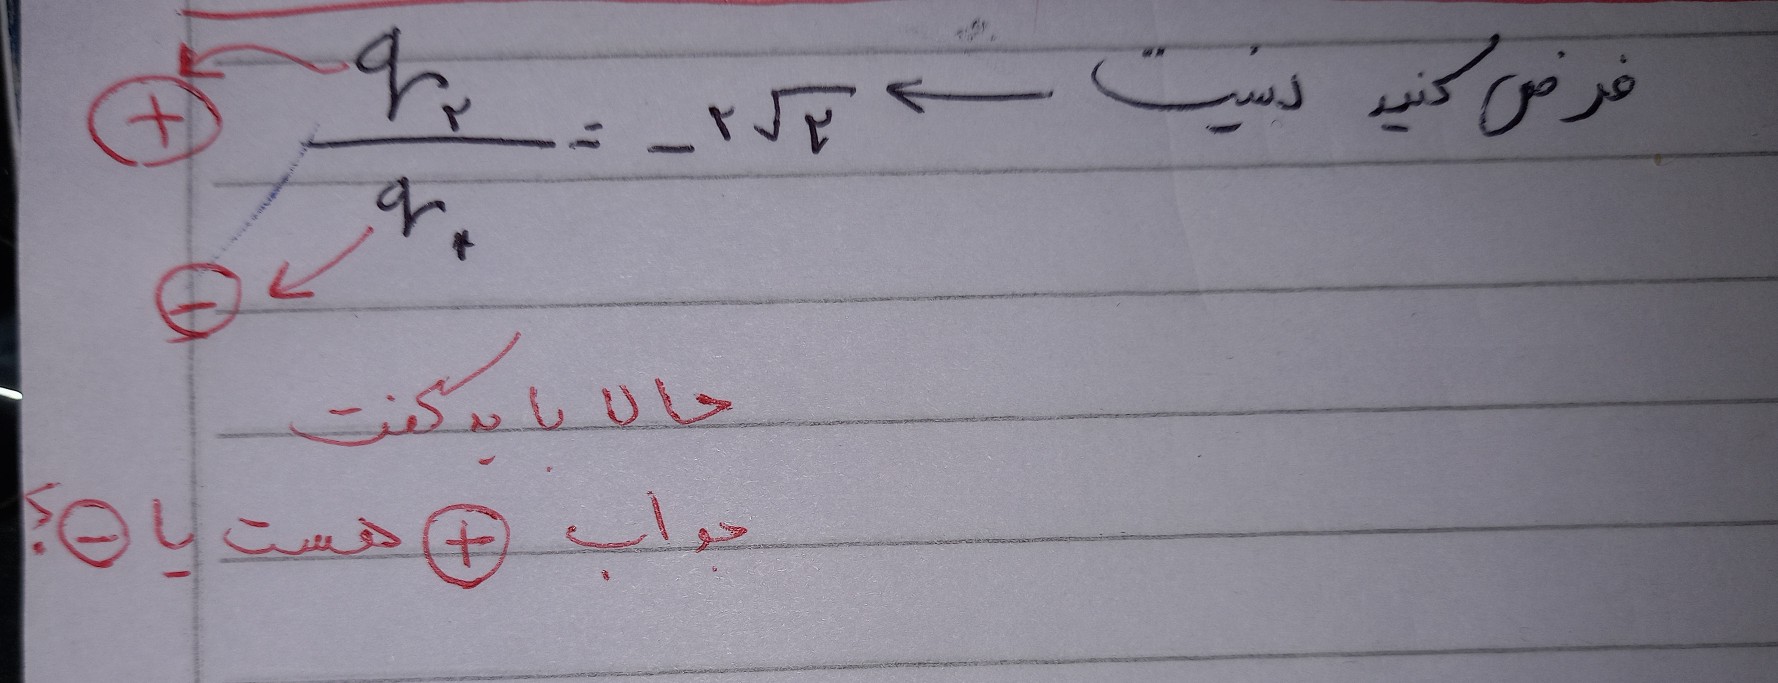 فرض کنید نسبت ← q۲/q۱ = -۲√۲
+
-
حالا باید گفت
جواب + هست یا -؟